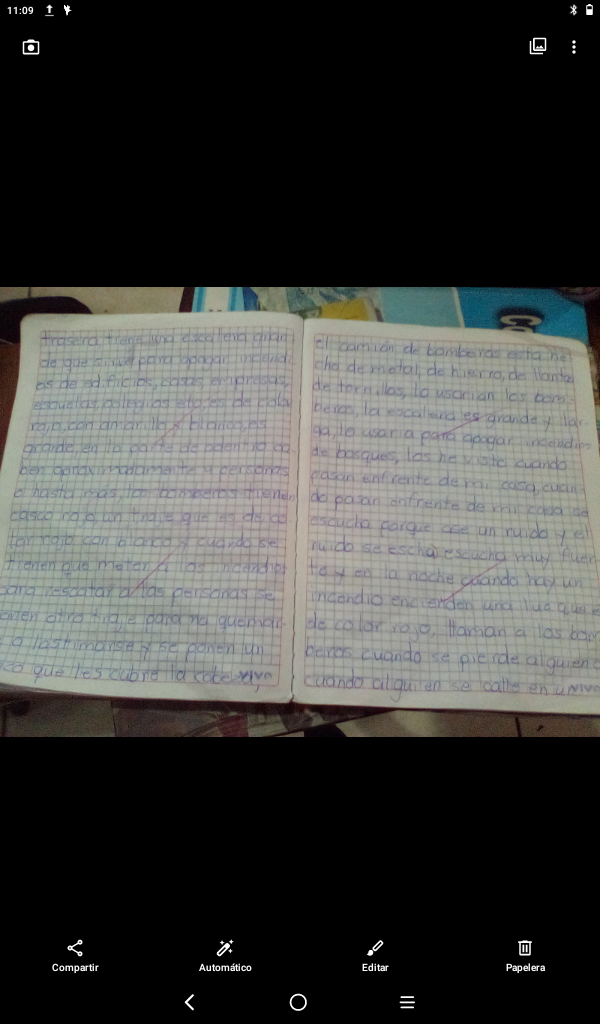 11:09
trasera tiene una escalera gran
de que sirve para apagar incendi
os de edificios, casas, empresas,
escuelas, colegios etc, es de colo
rojo, con amarillo y blanco, es
grande, en la parte de adentro ca
ben aproximadamente 4 personas
o hasta más, los bomberos tienen
casco rojo, un traje que es de co
lor rojo con blanco y cuando se
tienen que meter a los incendios
para rescatar a las personas se
ponen otro traje para no quemar
se o lastimarse y se ponen un
que les cubre la cabe
el camión de bomberos esta he
cho de metal, de hierro, de llanta
de tornillos, lo usarian los bom
beros, la escalera es grande y lar
ga, lo usaria para apagar incendios
de bosques, los he visto cuando
pasan enfrente de mi casa, cuan
do pasan enfrente de mi casa se
escucha porque ase un ruido y el
ruido se escha escucha muy fuer
te y en la noche cuando hay un
incendio encienden una luz que e
de color rojo, llaman a los bom
beros cuando se pierde alguien o
cuando alguien se calle en u
Compartir
Automático
Editar
Papelera